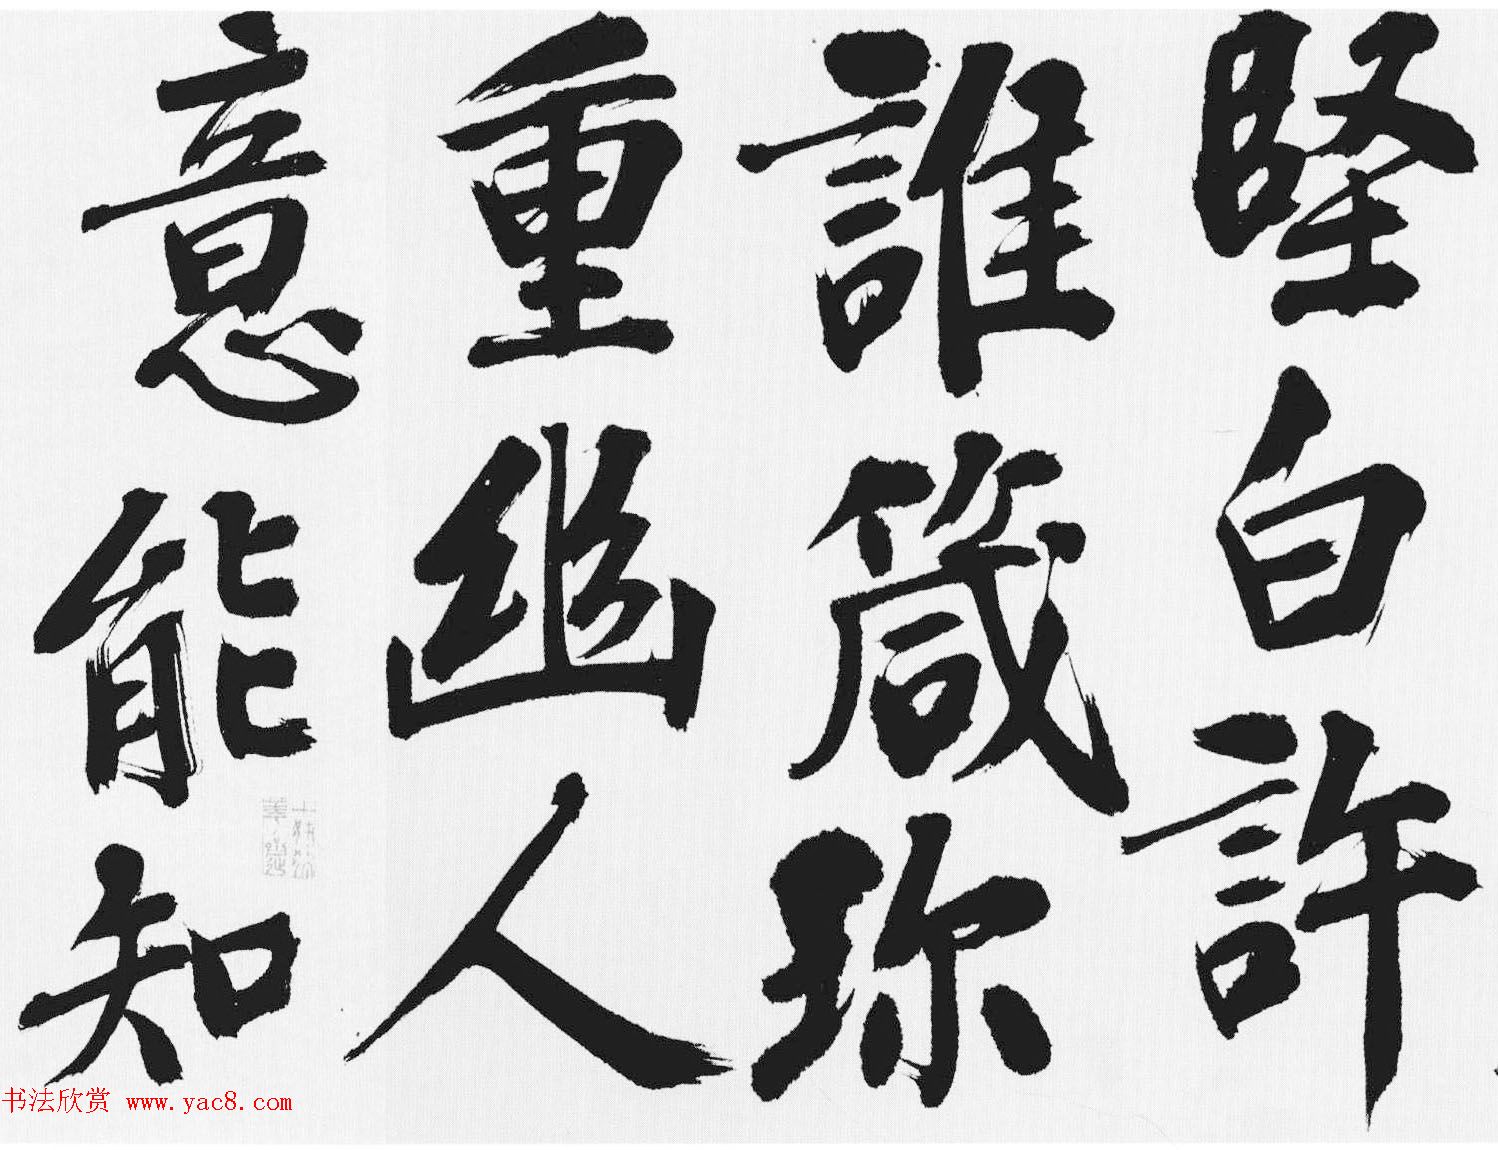 堅白許
誰箴珎
重幽人
意能知
书法欣赏 www.yac8.com